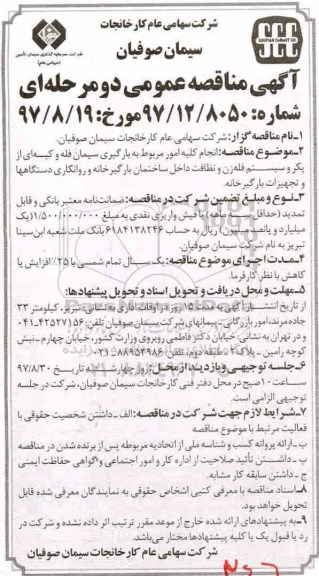 شرکت سهامی عام کارخانجات
سیمان صوفیان
SCC
شرکت سرمایه گذاری سیمان تأمین
(سهامی عام)
آگهی مناقصه عمومی دو مرحله‌ای
شماره: ۹۷/۱۲/۸۰۵۰ مورخ: ۹۷/۸/۱۹
۱-نام مناقصه گزار: شرکت سهامی عام کارخانجات سیمان صوفیان.
۲-موضوع مناقصه: انجام کلیه امور مربوط به بارگیری سیمان فله و کیسه‌ای از
پکر و سیستم فله‌زن و نظافت داخل ساختمان بارگیرخانه و روانکاری دستگاهها
و تجهیزات بارگیرخانه.
۳-نوع و مبلغ تضمین شرکت در مناقصه: ضمانت‌نامه معتبر بانکی و قابل
تمدید (حداقل سه ماهه) یا فیش واریزی نقدی به مبلغ ۱/۵۰۰/۰۰۰/۰۰۰ (یک
میلیارد و پانصد میلیون) ریال به حساب ۶۱۸۴۱۳۸۲۴۶ بانک ملت شعبه ابن سینا
تبریز به نام شرکت سیمان صوفیان.
۴-مدت اجرای موضوع مناقصه: یک سال تمام شمسی با ۲۵٪ افزایش یا
کاهش با نظر کارفرما.
۵-مهلت و محل دریافت و تحویل اسناد و تحویل پیشنهادها:
از تاریخ انتشار آگهی به مدت ۱۵ روز در اوقات اداری به نشانی: تبریز، کیلومتر ۳۳
جاده مرند، امور بازرگانی - پیمانهای شرکت سیمان صوفیان تلفن: ۴۲۲۵۷۱۵۶-۰۴۱
و در تهران به نشانی: خیابان دکتر فاطمی روبروی وزارت کشور، خیابان چهارم - نبش
کوچه رامین - پلاک ۲ - طبقه دوم، تلفن: ۸۸۹۵۳۹۸۶-۰۲۱
۶-جلسه توجیهی و بازدید از محل: روز چهارشنبه به تاریخ ۹۷/۸/۳۰
ساعت ۱۰ صبح در محل دفتر فنی کارخانجات سیمان صوفیان، شرکت در جلسه
توجیهی الزامی است.
۷-شرایط لازم جهت شرکت در مناقصه: الف - داشتن شخصیت حقوقی با
فعالیت مرتبط با موضوع مناقصه
ب - ارائه پروانه کسب و شناسه ملی از اتحادیه مربوطه پس از برنده شدن در مناقصه
پ - داشتن تأئید صلاحیت از اداره کار و امور اجتماعی و گواهی حفاظت ایمنی
ج - داشتن سابقه کار مشابه.
۸-اسناد مناقصه با معرفی کتبی اشخاص حقوقی به نمایندگان معرفی شده قابل
تحویل خواهد بود.
۹-به پیشنهادهای ارائه شده خارج از موعد مقرر ترتیب اثر داده نشده و شرکت در
رد یا قبول یک یا کلیه پیشنهادها مختار می‌باشد.
شرکت سهامی عام کارخانجات سیمان صوفیان